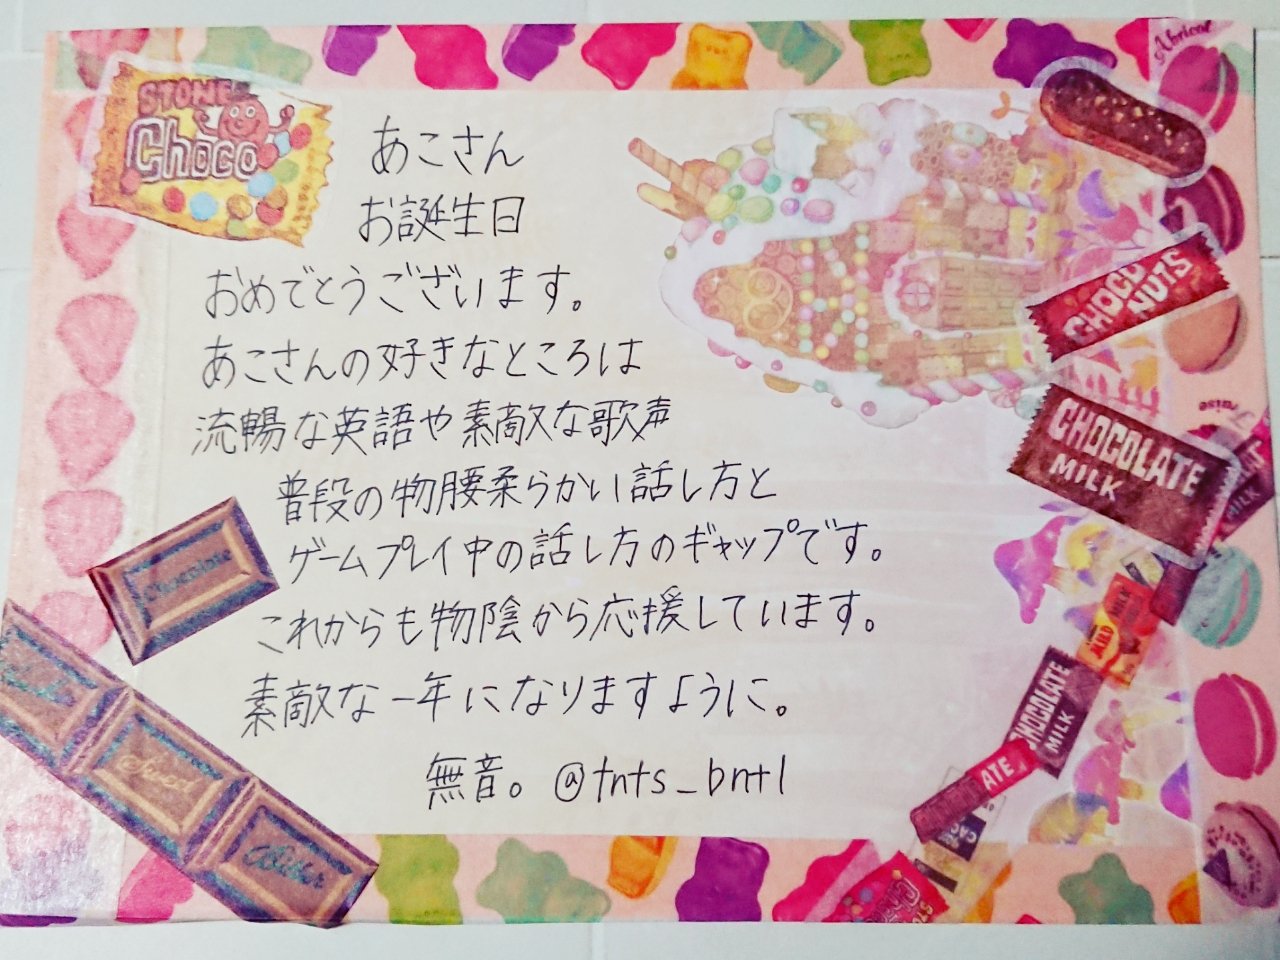 STONE
Choco
あこさん
お誕生日
おめでとうございます。
あこさんの好きなところは
流暢な英語や素敵な歌声
普段の物腰柔らかい話し方と
ゲームプレイ中の話し方のギャップです。
これからも物陰から応援しています。
素敵な一年になりますように。
無音。@tnts_bntl
Abricot
CHOCO
NUTS
CHOCOLATE
MILK
MILK
Chocolate
MILK
CHOCOLATE
MILK
Sweet